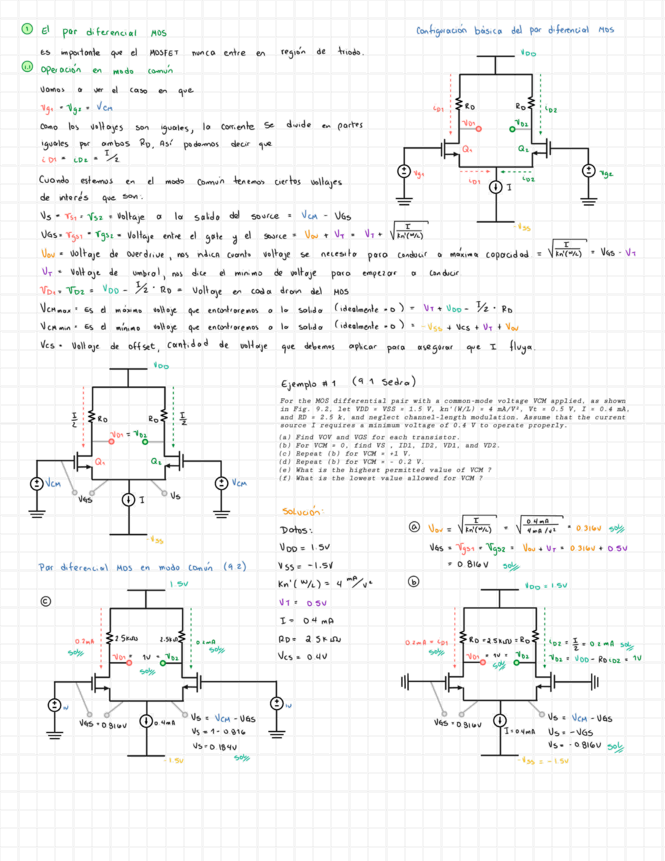 ① El par diferencial MOS
Es importante que el MOSFET nunca entre en región de triodo.
1.1 Operación en modo común
Vamos a ver el caso en que
Vg1 = Vg2 = VCM
Como los voltajes son iguales, la corriente se divide en partes
iguales por ambos RD, Así podemos decir que
iD1 = iD2 = I/2
Cuando estemos en el modo común tenemos ciertos voltajes
de interés que son:
VS = VS1 = VS2 = Voltaje a la salida del source = VCM - VGS
VGS = VGS1 = VGS2 = Voltaje entre el gate y el source = VOV + VT = VT + √(I / kn'(W/L))
VOV = Voltaje de overdrive, nos indica cuanto voltaje se necesita para conducir a máxima capacidad = √(I / kn'(W/L)) = VGS - VT
VT = Voltaje de umbral, nos dice el mínimo de voltaje para empezar a conducir
VD1 = VD2 = VDD - I/2 · RD = Voltaje en cada drain del MOS
VCMmax = Es el máximo voltaje que encontraremos a la salida (idealmente = 0) = VT + VDD - I/2 · RD
VCMmin = Es el mínimo voltaje que encontraremos a la salida (idealmente = 0) = -VSS + VCS + VT + VOV
VCS = Voltaje de offset, cantidad de voltaje que debemos aplicar para asegurar que I fluya.
Configuración básica del par diferencial MOS
VDD
iD1 RD RD iD2
VD1 VD2
Q1 Q2
Vg1 Vg2
iD1 iD2
I
-VSS
VDD
I/2 RD RD I/2
VD1 = VD2
Q1 Q2
VCM VCM
VGS I VS
-VSS
Par diferencial MOS en modo común (9.2)
Ejemplo #1 (9.1 Sedra)
For the MOS differential pair with a common-mode voltage VCM applied, as shown
in Fig. 9.2, let VDD = VSS = 1.5 V, kn'(W/L) = 4 mA/V², Vt = 0.5 V, I = 0.4 mA,
and RD = 2.5 k, and neglect channel-length modulation. Assume that the current
source I requires a minimum voltage of 0.4 V to operate properly.
(a) Find VOV and VGS for each transistor.
(b) For VCM = 0, find VS , ID1, ID2, VD1, and VD2.
(c) Repeat (b) for VCM = +1 V.
(d) Repeat (b) for VCM = - 0.2 V.
(e) What is the highest permitted value of VCM ?
(f) What is the lowest value allowed for VCM ?
Solución:
Datos:
VDD = 1.5V
VSS = -1.5V
Kn'(W/L) = 4 mA/V²
VT = 0.5V
I = 0.4 mA
RD = 2.5 KΩ
VCS = 0.4V
ⓐ VOV = √(I / kn'(W/L)) = √(0.4mA / 4mA/V²) = 0.316V sol
VGS = VGS1 = VGS2 = VOV + VT = 0.316V + 0.5V
= 0.816V sol
ⓑ
VDD = 1.5V
0.2mA = iD1 sol RD = 2.5KΩ = RD iD2 = I/2 = 0.2 mA sol
VD1 = 1V = VD2 sol VD2 = VDD - RD iD2 = 1V
VGS = 0.816V I = 0.4mA VS = VCM - VGS
VS = -VGS
VS = -0.816V sol
-VSS = -1.5V
ⓒ
1.5V
0.2mA sol 2.5KΩ 2.5KΩ 0.2mA sol
VD1 = 1V = VD2
sol
1V 1V
VGS = 0.816V 0.4mA VS = VCM - VGS
VS = 1 - 0.816
VS = 0.184V
sol
-1.5V